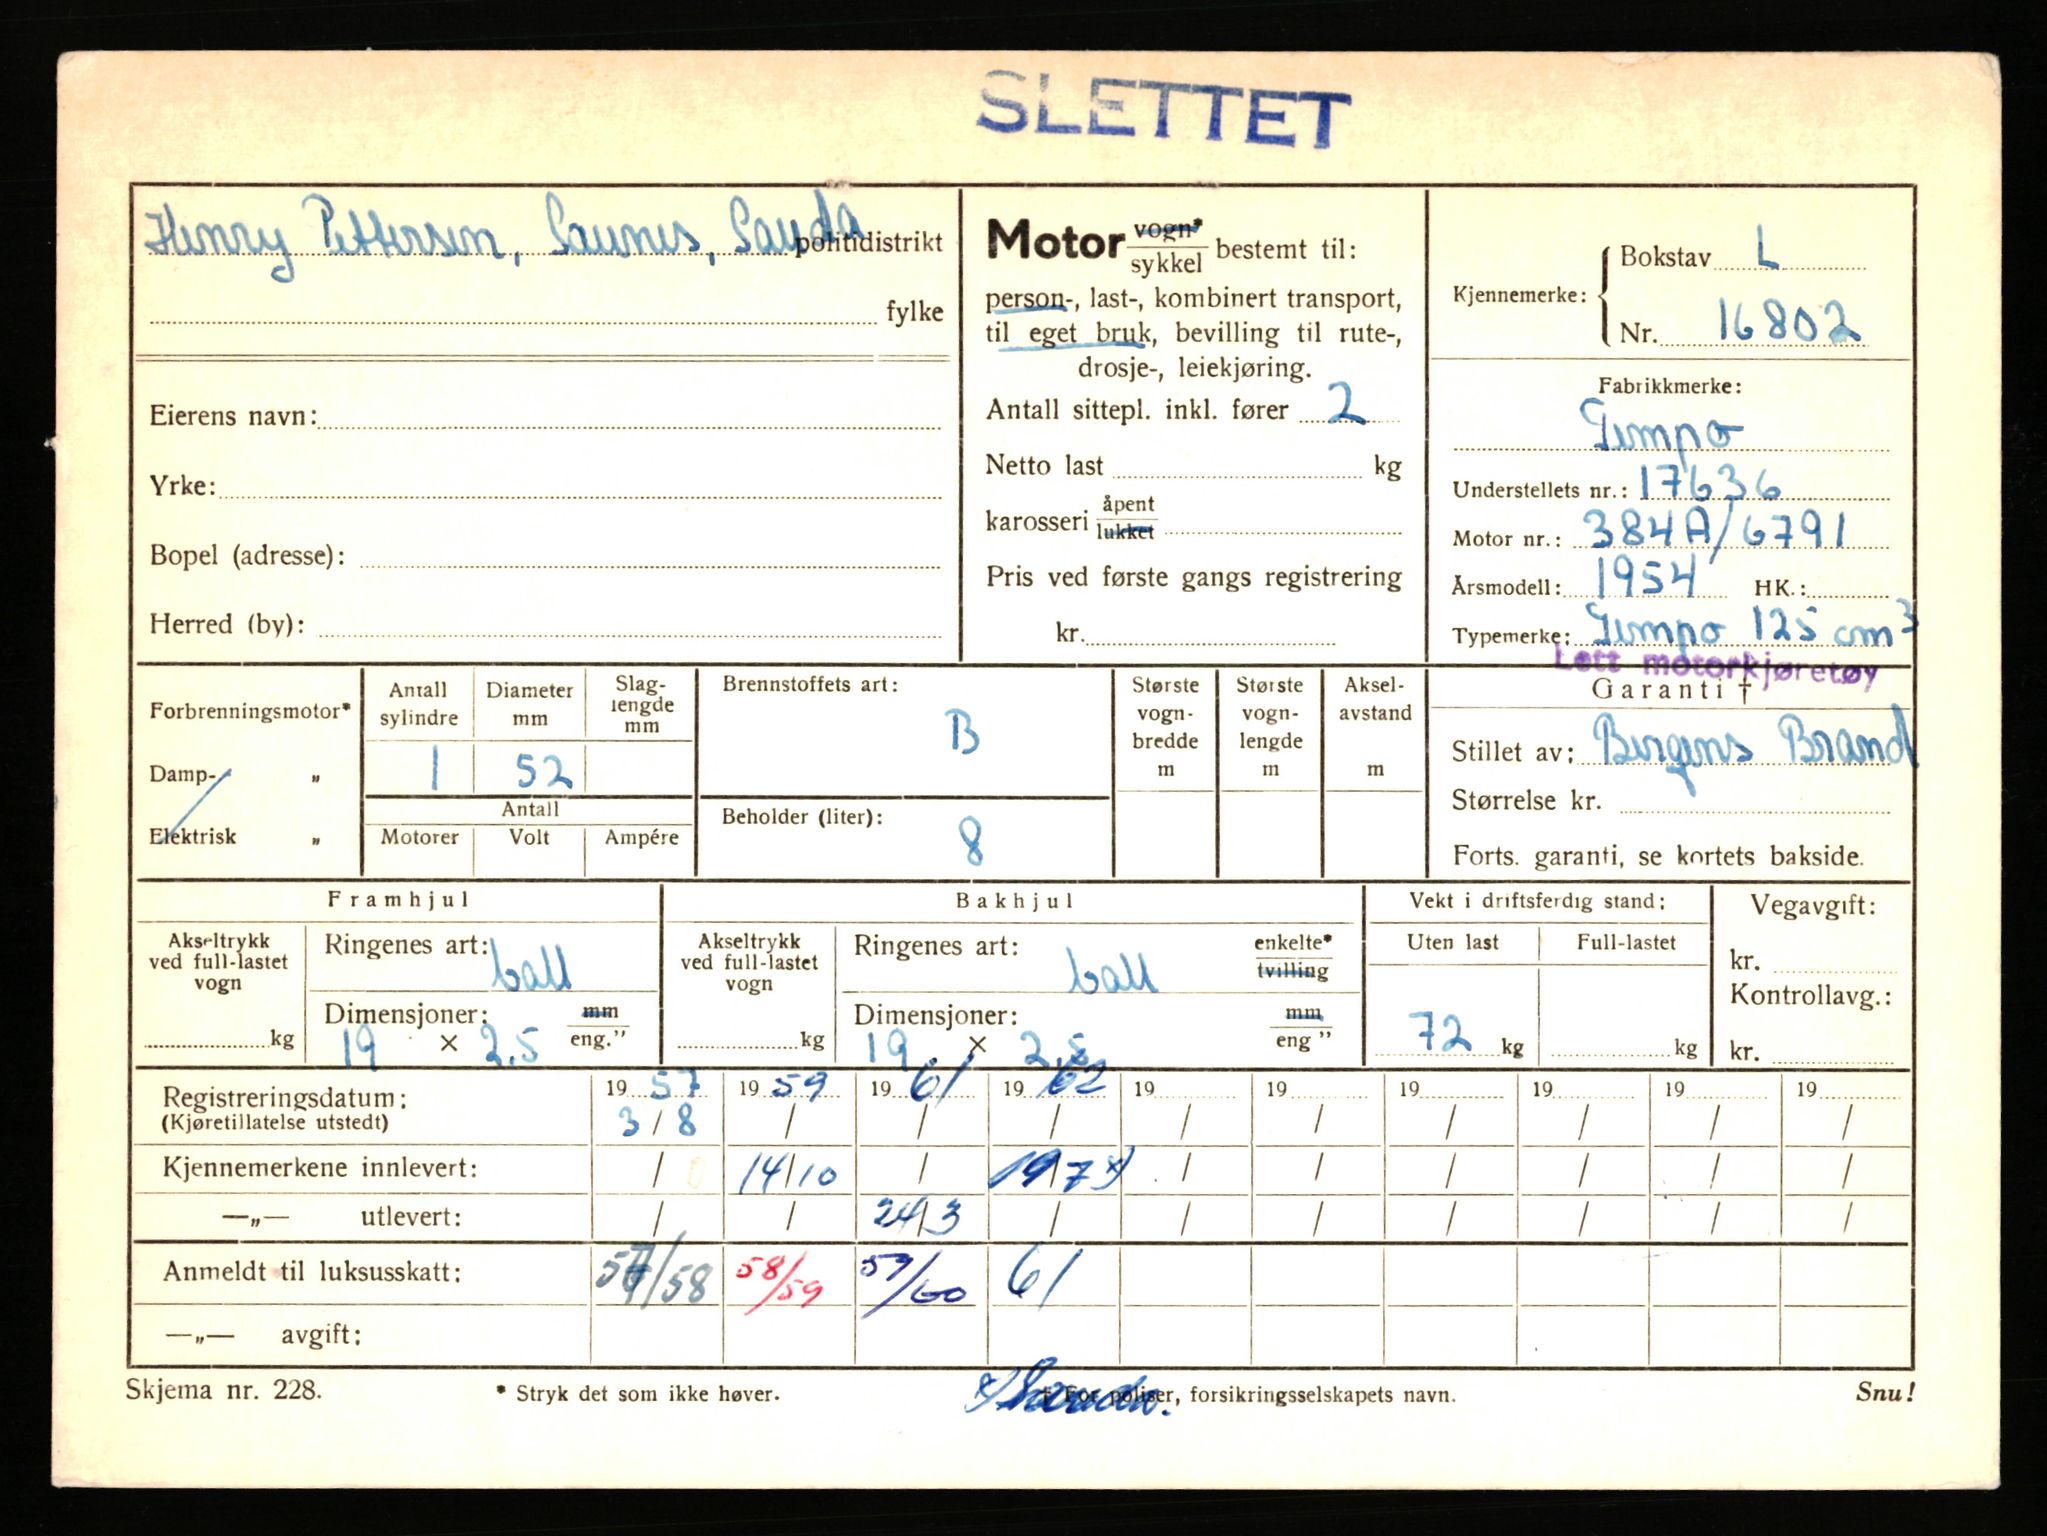 SLETTET
Henry Pettersen, Saunes, Sauda politidistrikt
fylke
Eierens navn:
Yrke:
Bopel (adresse):
Herred (by):
Motor vogn* / sykkel bestemt til:
person-, last-, kombinert transport,
til eget bruk, bevilling til rute-,
drosje-, leiekjøring.
Antall sittepl. inkl. fører 2
Netto last kg
karosseri åpent / lukket
Pris ved første gangs registrering
kr.
Kjennemerke: Bokstav L
Nr. 16802
Fabrikkmerke:
Tempo
Understellets nr.: 17636
Motor nr.: 384A/6791
Årsmodell: 1954 HK.:
Typemerke: Tempo 125 cm3
Lett motorkjøretøy
Forbrenningsmotor*
Damp- „
Elektrisk „
Antall sylindre 1
Diameter mm 52
Slag-lengde mm
Antall
Motorer Volt Ampére
Brennstoffets art:
B
Beholder (liter):
8
Største vogn-bredde m
Største vogn-lengde m
Aksel-avstand m
Garanti †
Stillet av: Bergens Brand
Størrelse kr.
Forts. garanti, se kortets bakside.
Framhjul
Akseltrykk ved full-lastet vogn
kg
Ringenes art: ball
Dimensjoner: mm / eng."
19 × 2.5
Bakhjul
Akseltrykk ved full-lastet vogn
kg
Ringenes art: ball
enkelte* / tvilling
Dimensjoner: mm / eng "
19 × 2.5
Vekt i driftsferdig stand:
Uten last Full-lastet
72 kg kg
Vegavgift:
kr.
Kontrollavg.:
kr.
Registreringsdatum: 19 57 19 59 19 61 19 62 19 19 19 19 19 19
(Kjøretillatelse utstedt) 3/8 / / / / / / / / /
Kjennemerkene innlevert: / 14/10 / 19/7 x) / / / / / /
—„— utlevert: / / 24/3 / / / / / / /
Anmeldt til luksusskatt: 57/58 58/59 59/60 61
—„— avgift:
Skjema nr. 228.
* Stryk det som ikke høver.
x)
† For poliser, forsikringsselskapets navn.
Snu!